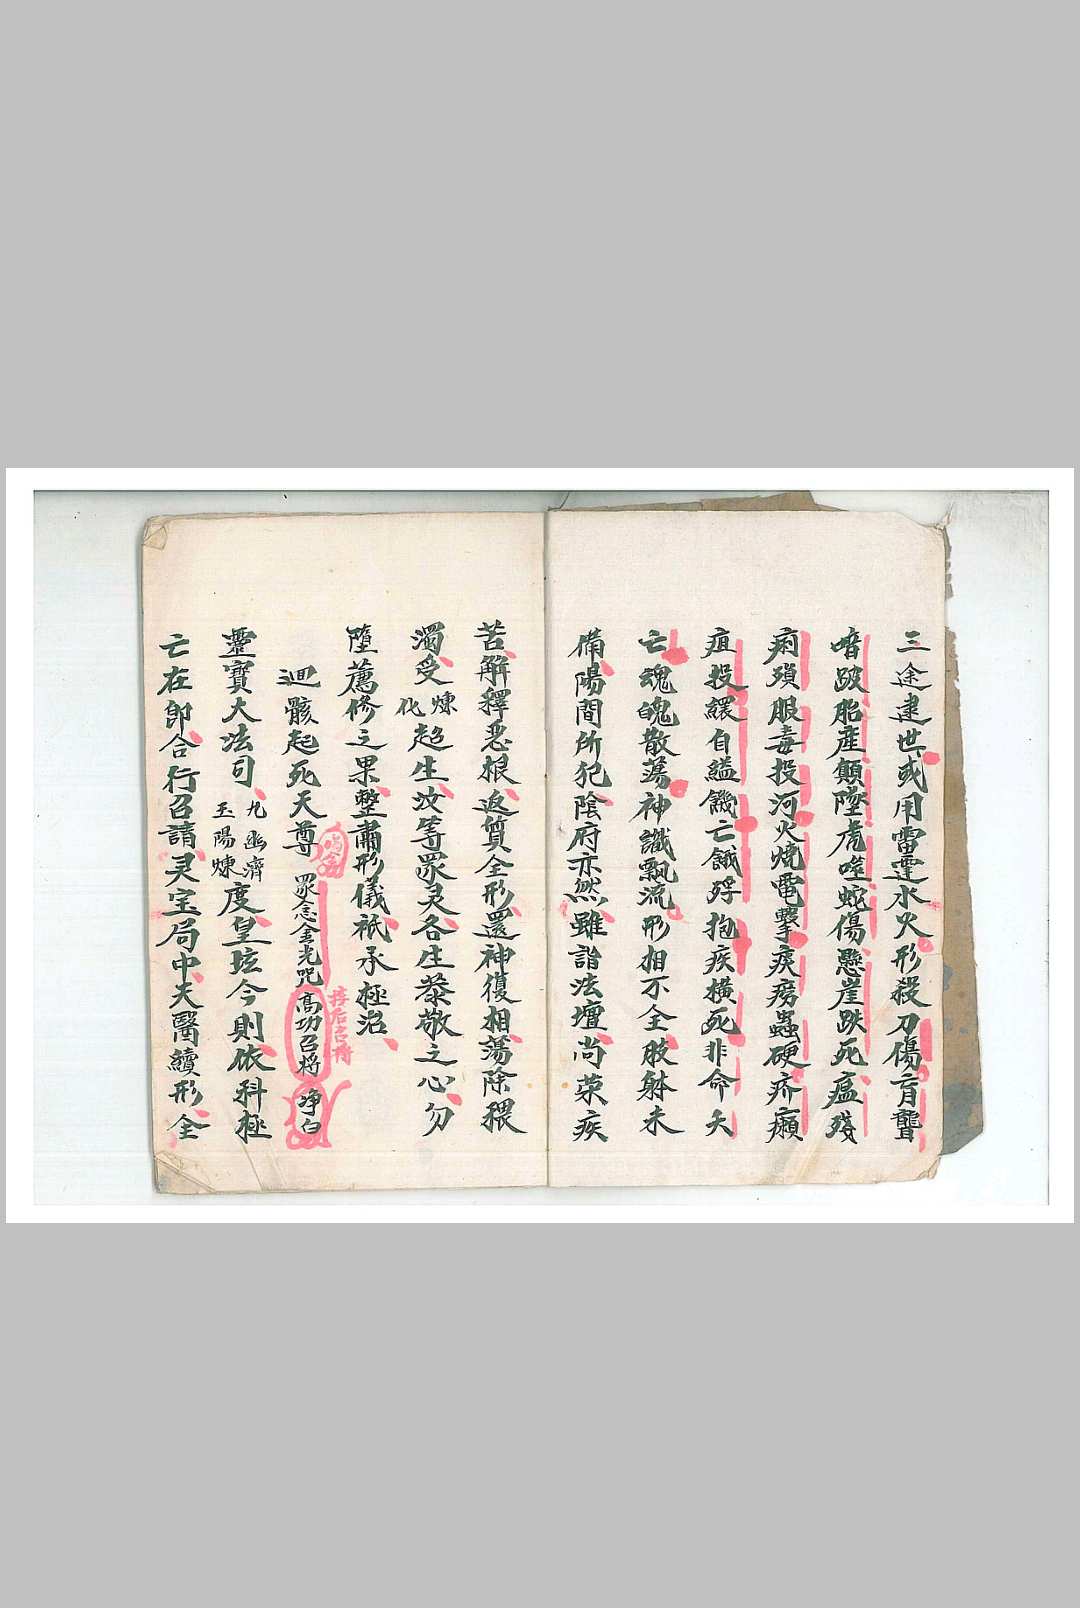 三途逮世或用雷霆水火形殺刀傷盲聾
喑跛胎産顛墜虎噬蛇傷懸崖跌死瘟殘
痢殞服毒投河火燒電擊痰癆蠱硬疥癩
疽投繯自縊饑亡餓殍抱疾橫死非命夭
亡魂魄散蕩神識飄流形相不全肢躰未
備陽間所犯陰府亦然雖詣法壇尚荣疾
苦解釋惡根返質全形還神復相蕩除穢
濁受煉化超生汝等眾灵各生恭敬之心勿
墮薦修之果整肅形儀祇承極治
迴骸起死天尊 眾念金光咒 高功召將 净白
接后召將
靈寶大法司 九幽濟 玉陽煉 度皇坛今則依科極
亡在即合行召請灵宝局中天醫續形全